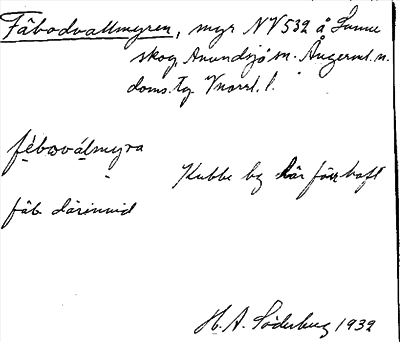 Fäbodvallmyren, myr NV532 å Sunne
skog, Anundsjö sn. Ångerml. n.
doms. tg Vnorrl. l.
fébωválmyra
Kubbe by här förr haft
fäb. därinvid
H. A. Söderberg 1932